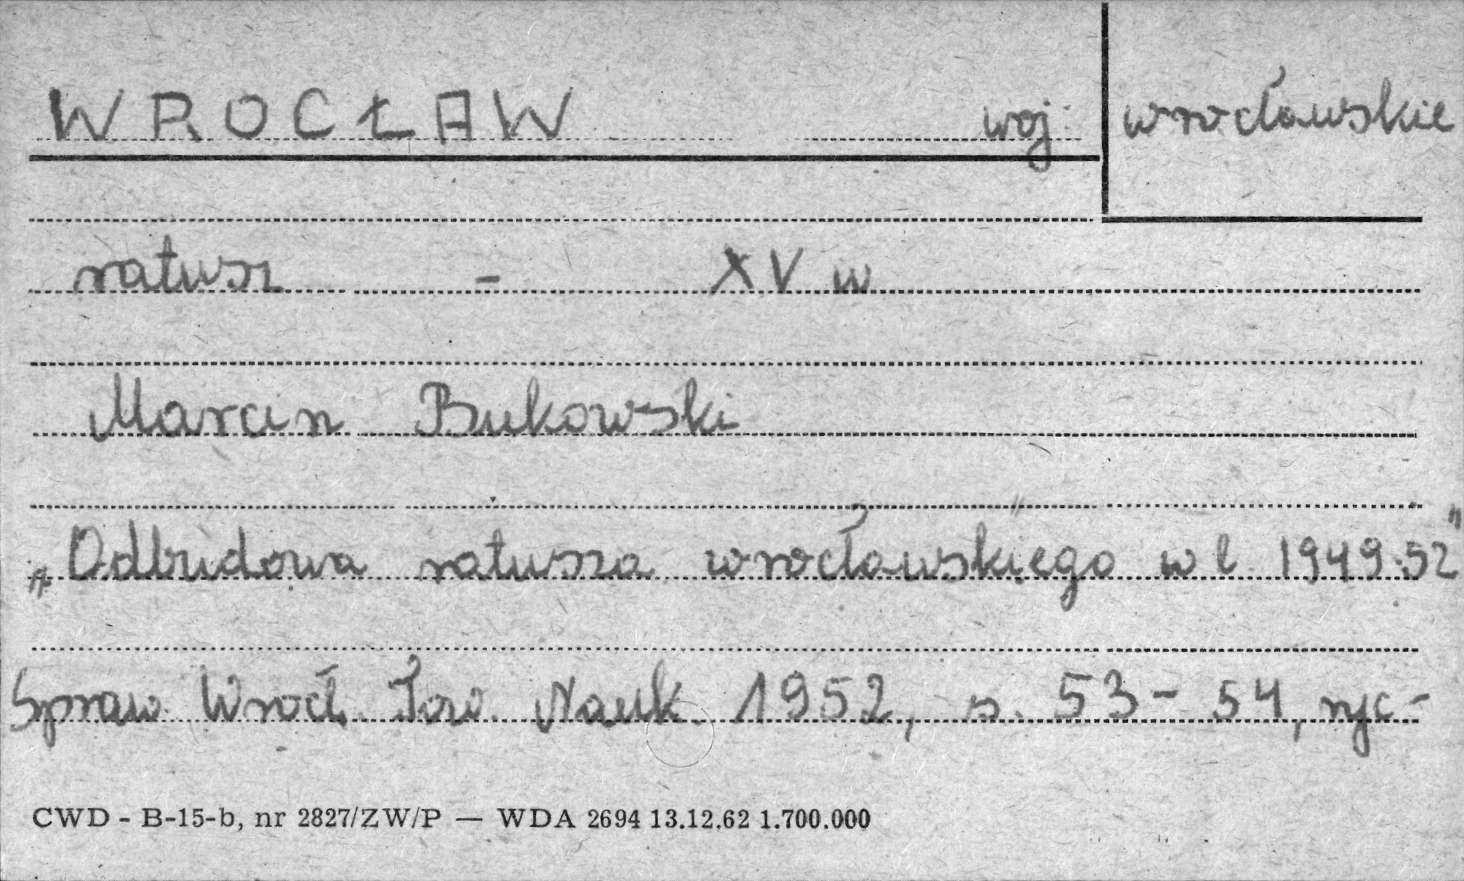 WROCŁAW woj. wrocławskie
ratusz - XV w
Marcin Bukowski
„Odbudowa ratusza wrocławskiego w l. 1949-52"
Spraw. Wrocł. Tow. Nauk. 1952, s. 53-54, ryc-
CWD - B-15-b, nr 2827/ZW/P — WDA 2694 13.12.62 1.700.000